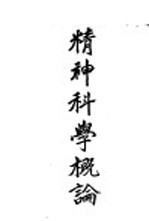 精神科學概論